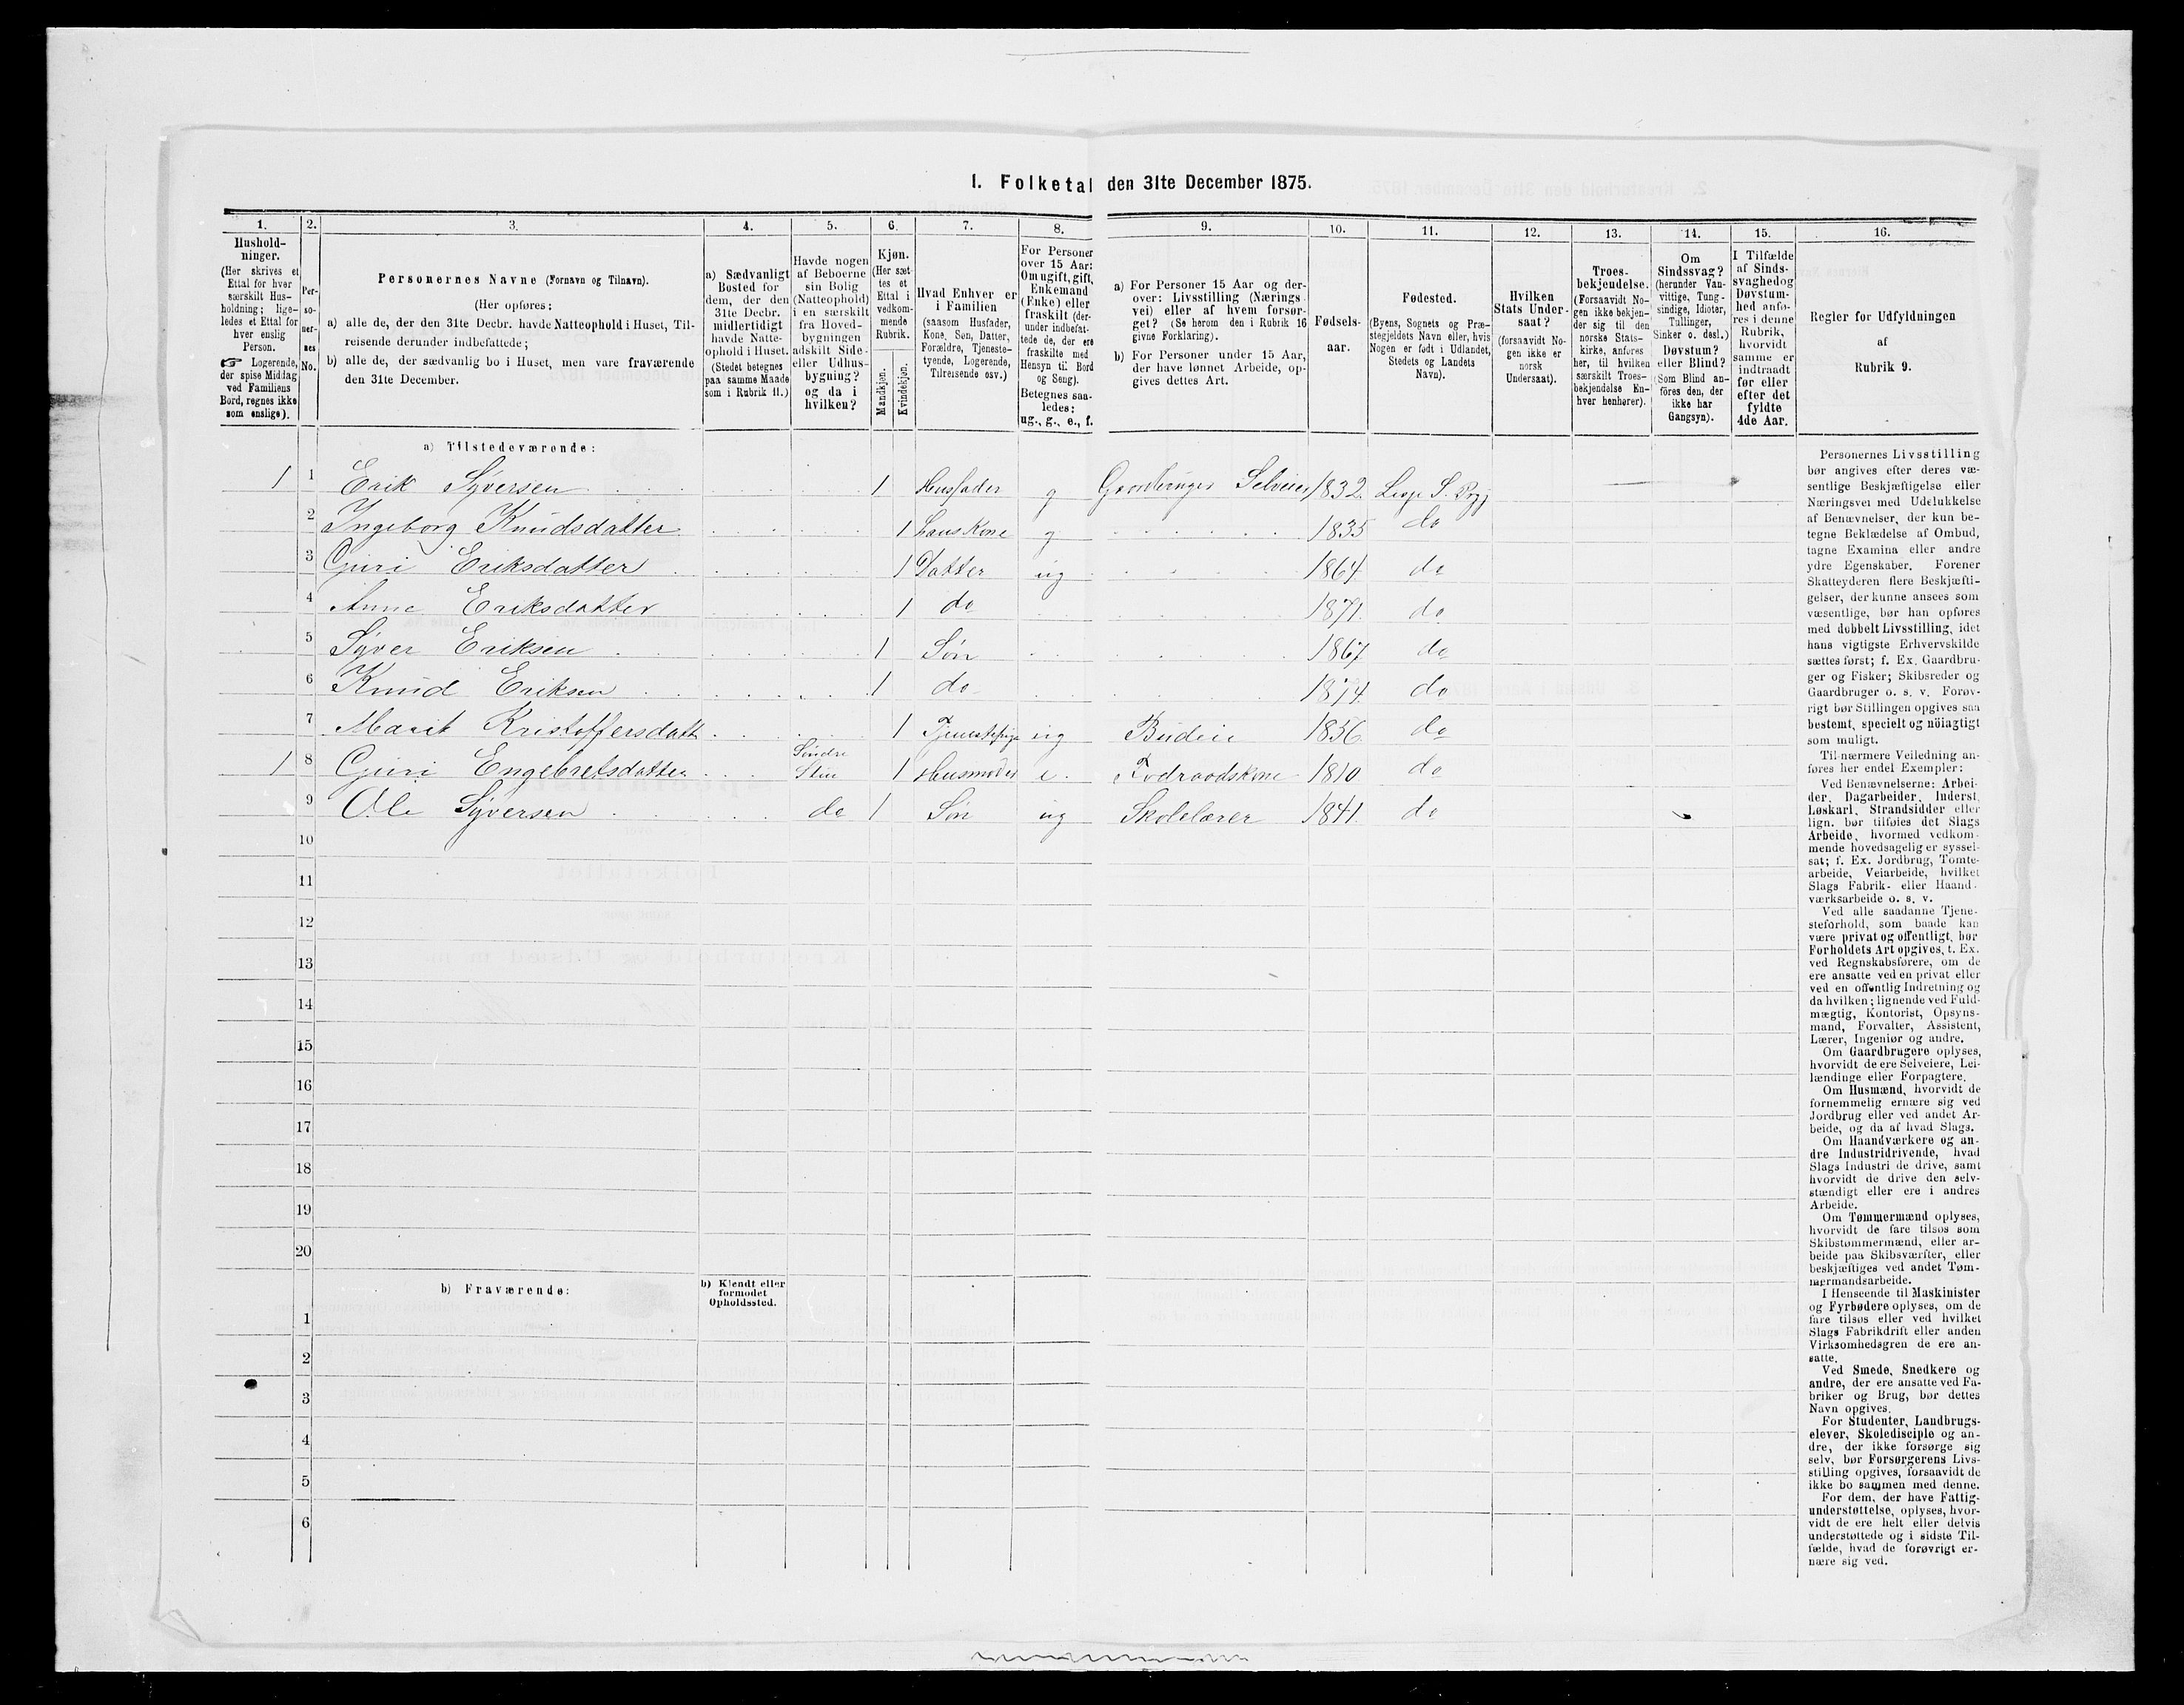 1. Folketal den 31te December 1875.
1. 2. 3. 4. 5. 6. 7. 8. 9. 10. 11. 12. 13. 14. 15. 16.
Hushold-
ninger.
(Her skrives et
Ettal for hver
særskilt Hus-
holdning; lige-
ledes et Ettal for
hver enslig
Person.
☞ Logerende,
der spise Middag
ved Familiens
Bord, regnes ikke
som enslige).
Per-
so-
ner-
nes
No.
Personernes Navne (Fornavn og Tilnavn).
(Her opføres:
a) alle de, der den 31te Decbr. havde Natteophold i Huset, Til-
reisende derunder indbefattede;
b) alle de, der sædvanlig bo i Huset, men vare fraværende
den 31te December.
a) Sædvanligt
Bosted for
dem, der den
31te Decbr.
midlertidigt
havde Natte-
ophold i Huset.
(Stedet betegnes
paa samme Maade
som i Rubrik 11.)
Havde nogen
af Beboerne
sin Bolig
(Natteophold)
i en særskilt
fra Hoved-
bygningen
adskilt Side-
eller Udhus-
bygning?
og da i
hvilken?
Kjøn.
(Her sæt-
tes et
Ettal i
vedkom-
mende
Rubrik.
Mandkjøn.
Kvindekjøn.
Hvad Enhver er
i Familien
(saasom Husfader,
Kone, Søn, Datter,
Forældre, Tjeneste-
tyende, Logerende,
Tilreisende osv.)
For Personer
over 15 Aar:
Om ugift, gift,
Enkemand
(Enke) eller
fraskilt (der-
under indbefat-
tede de, der ere
fraskilte med
Hensyn til Bord
og Seng).
Betegnes saa-
ledes:
ug., g., e., f.
a) For Personer 15 Aar og der-
over: Livsstilling (Nærings-
vei) eller af hvem forsør-
get? (Se herom den i Rubrik 16
givne Forklaring).
b) For Personer under 15 Aar,
der have lønnet Arbeide, op-
gives dettes Art.
Fødsels-
aar.
Fødested.
(Byens, Sognets og Præ-
stegjeldets Navn eller, hvis
Nogen er født i Udlandet,
Stedets og Landets
Navn).
Hvilken
Stats Under-
saat?
(forsaavidt No-
gen ikke er
norsk
Undersaat).
Troes-
bekjendelse.
(Forsaavidt No-
gen ikke bekjen-
der sig til den
norske Stats-
kirke, anføres
her, til hvilken
særskilt Troes-
bekjendelse En-
hver henhører).
Om
Sindssvag?
(herunder Van-
vittige, Tung-
sindige, Idioter,
Tullinger,
Sinker o. desl.)
Døvstum?
eller Blind?
(Som Blind an-
føres den, der
ikke har
Gangsyn).
I Tilfælde
af Sinds-
svaghed og
Døvstum-
hed anfø-
res i denne
Rubrik,
hvorvidt
samme er
indtraadt
før eller
efter det
fyldte
4de Aar.
Regler for Udfyldningen
af
Rubrik 9.
a) Tilstedeværende:
1 1 Erik Syversen 1 Husfader g Gaardbruger Selveier 1832
2 Ingeborg Knudsdatter 1 Kone g 1835 do
3 Guri Eriksdatter 1 Datter ug 1864 do
4 Anne Eriksdatter 1 do 1871 do
5 Syver Eriksen 1 Søn 1867 do
6 Knud Eriksen 1 do 1874 do
7 Marit Kristoffersdatt 1 ug Budeie 1856 do
1 8 Guri Engebretsdatter Søndre Stue 1 Husmoder e. Fodraadskone 1810 do
9 Ole Syversen do 1 Søn ug Skolelærer 1841 do
10
11
12
13
14
15
16
17
18
19
20
b) Fraværende:
b) Kjendt eller
formodet
Opholdssted.
1
2
3
4
5
6
Personernes Livsstilling
bør angives efter deres væ-
sentlige Beskjæftigelse eller
Næringsvei med Udelukkelse
af Benævnelser, der kun be-
tegne Beklædelse af Ombud,
tagne Examina eller andre
ydre Egenskaber. Forener
Skatteyderen flere Beskjæfti-
gelser, der kunne ansees som
væsentlige, bør han opføres
med dobbelt Livsstilling, idet
hans vigtigste Erhvervskilde
sættes først; f. Ex. Gaardbru-
ger og Fisker; Skibsreder og
Gaardbruger o. s. v. Forøv-
rigt bør Stillingen opgives saa
bestemt, specielt og nöiagtigt
som muligt.
Til nærmere Veiledning an-
føres her endel Exempler:
Ved Benævnelserne: Arbei-
der, Dagarbeider, Inderst,
Løskarl, Strandsidder eller
lign. bør tilføies det Slags
Arbeide, hvormed vedkom-
mende hovedsagelig er syssel-
sat; f. Ex. Jordbrug, Tomte-
arbeide, Veiarbeide, hvilket
Slags Fabrik- eller Haand-
værksarbeide o. s. v.
Ved alle saadanne Tjene-
steforhold, som baade kan
være privat og offentligt, bør
Forholdets Art opgives, t. Ex.
ved Regnskabsførere, om de
ere ansatte ved en privat eller
ved en offentlig Indretning og
da hvilken; lignende ved Fuld-
mægtig, Kontorist, Opsyns-
mand, Forvalter, Assistent,
Lærer, Ingeniør og andre.
Om Gaardbrugere oplyses,
hvorvidt de ere Selveiere, Lei-
lændinge eller Forpagtere.
Om Husmænd, hvorvidt de
fornemmelig ernære sig ved
Jordbrug eller ved andet Ar-
beide, og da af hvad Slags.
Om Haandværkere og an-
dre Industridrivende, hvad
Slags Industri de drive, samt
hvorvidt de drive den selv-
stændigt eller ere i andres
Arbeide.
Om Tømmermænd oplyses,
hvorvidt de fare tilsøs som
Skibstømmermænd, eller ar-
beide paa Skibsværfter, eller
beskjæftiges ved andet Tøm-
mermandsarbeide.
I Henseende til Maskinister
og Fyrbødere oplyses, om de
fare tilsøs eller ved hvilket
Slags Fabrikdrift eller anden
Virksomhedsgren de ere an-
satte.
Ved Smede, Snedkere og
andre, der ere ansatte ved Fa-
briker og Brug, bør dettes
Navn opgives.
For Studenter, Landbrugs-
elever, Skoledisciple og an-
dre, der ikke forsørge sig
selv, bør Forsørgerens Livs-
stilling opgives, forsaavidt de
ikke bo sammen med denne.
For dem, der have Fattig-
understøttelse, oplyses, hvor-
vidt de ere helt eller delvis
understøttede og i sidste Til-
fælde, hvad de forøvrigt er-
nære sig ved.